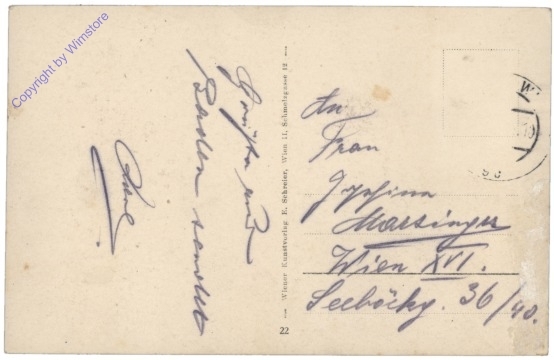 Copyright by Wimstore
Grüße aus
Baden sendet
Wiener Kunstverlag E. Schreier, Wien II, Schmelzgasse 12
22
An
Frau
Josefina
Marsinger
Wien XVI.
Seeböckg. 36/40.